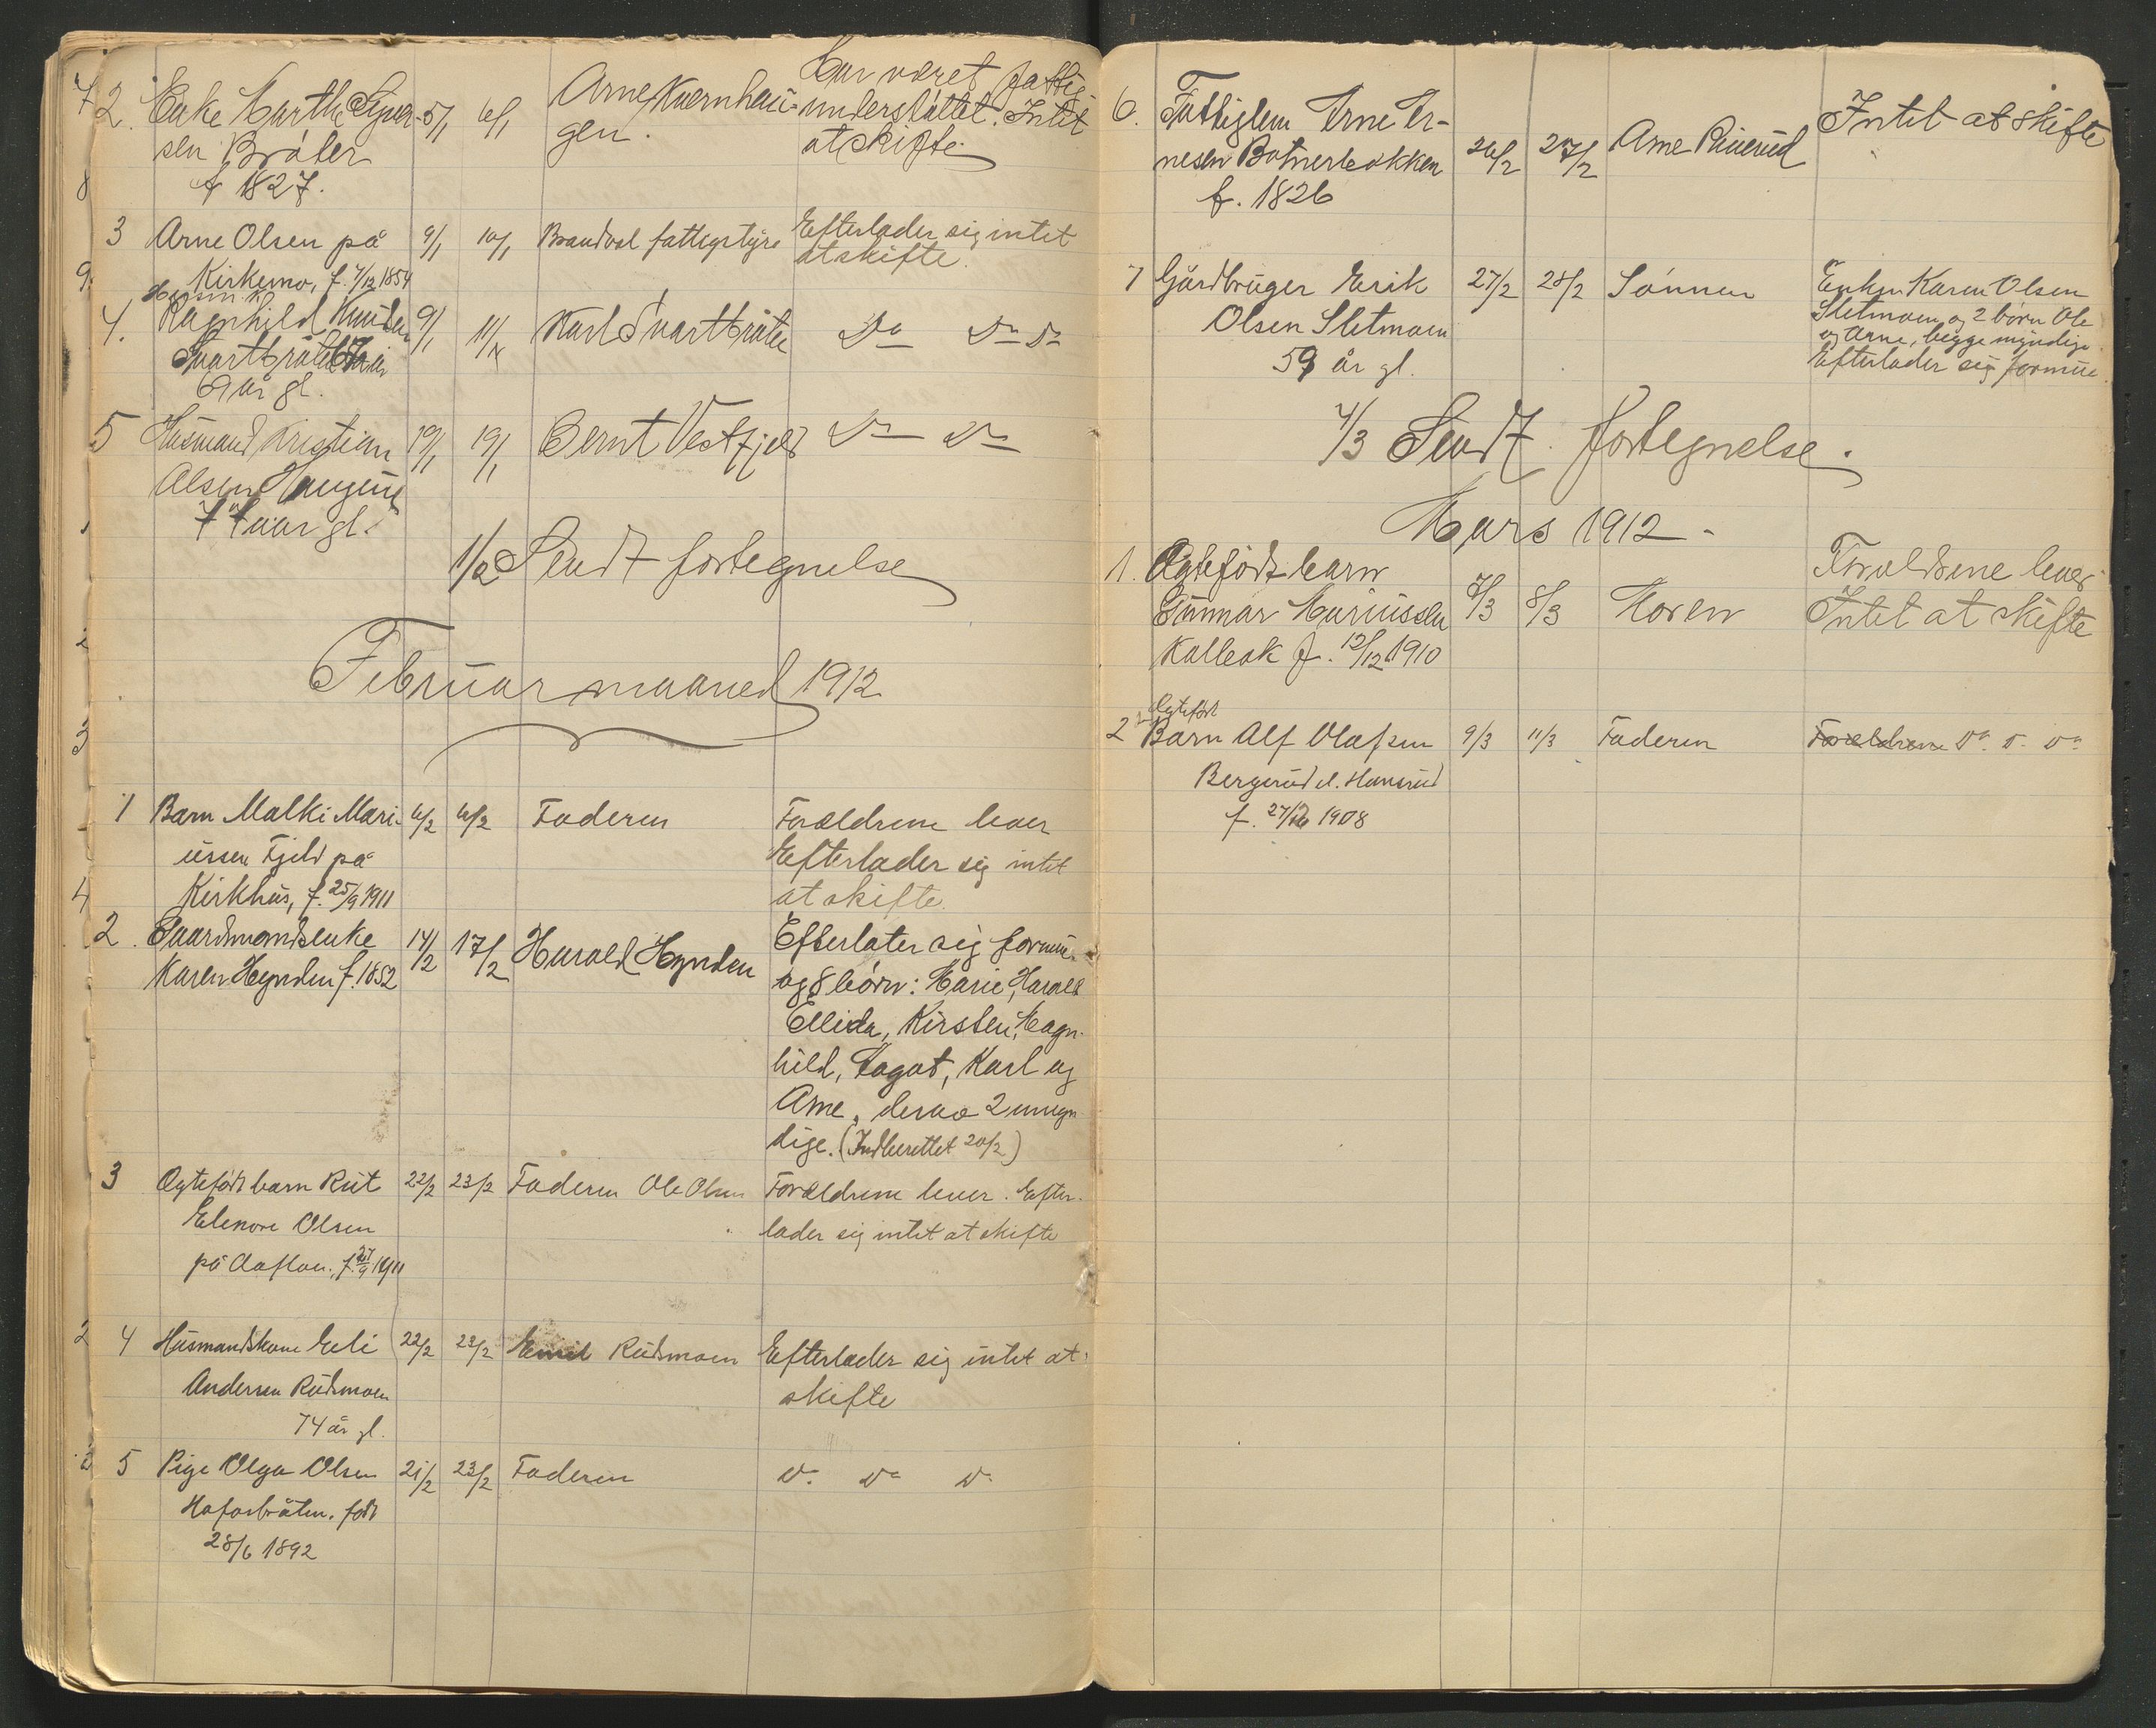 2. Enke Marthe Syver- 5/1 6/1 Arne Kvernhau- Har været fattig-
sen Bråten gen. understøttet. Intet
f 1827. at skifte.
3 Arne Olsen på 9/1 10/1 Brandval fattigstyre Efterlader sig intet
Kirkemo, f. 7/12 1854 at skifte.
4. Ragnhild Knudsen 9/1 11/1 Karl Svartbråten Do Do Do
Svartbråten
69 år gl.
5 Husmand Kristian 19/1 19/1 Bernt Vestfjeld Do Do
Olsen Haugene
77 aar gl.
1/2 Sendt fortegnelse
Februar maaned 1912
1 Barn Malki Mari- 6/2 6/2 Faderen Forældrene lever
ussen Fjeld på Efterlader sig intet
Kirkhus, f. 25/9 1911 at skifte.
2. Gaardmandsenke 14/2 17/2 Harald Hynden Efterlater sig formue
Karen Hynden f. 1852 og 8 børn: Marie, Harald
Ellida, Kirsten, Magn-
hild, Dagot, Karl og
Arne, derav 2 umyn-
dige. (Indberettet 20/2)
3 Ægtefødt barn Rut 22/2 23/2 Faderen Ole Olsen Forældrene lever. Efter-
Elenore Olsen lader sig intet at skifte
på f. 27/9 1911
4 Husmandskone Eli 22/2 23/2 Emil Rudsmoen Efterlader sig intet at
Andersen Rudsmoen skifte
74 år gl.
5 Pige Olga Olsen 21/2 23/2 Faderen Do Do Do
Hoforbråten. født
28/6 1892
6. Fattiglem Arne Ar- 26/2 27/2 Arne Ruverud Intet at skifte
nesen Botnerbakken
f. 1826
7 Gårdbruger Erik 27/2 28/2 Sønnen Enken Karen Olsen
Olsen Sletmoen Sletmoen og 2 børn Ole
59 år gl. og Arne, begge myndige.
Efterlader sig formue
4/3 Sendt fortegnelse.
Mars 1912.
1. Ægtefødt barn Forældrene lever
Gunnar Mariussen 7/3 8/3 Moren Intet at skifte
Kalbak f. 12/12 1910
Ægtefødt
2 Barn Alf Olafsen 9/3 11/3 Faderen Forældrene Do. D. Do
Bergerud el. Hansrud
f. 27/12 1908